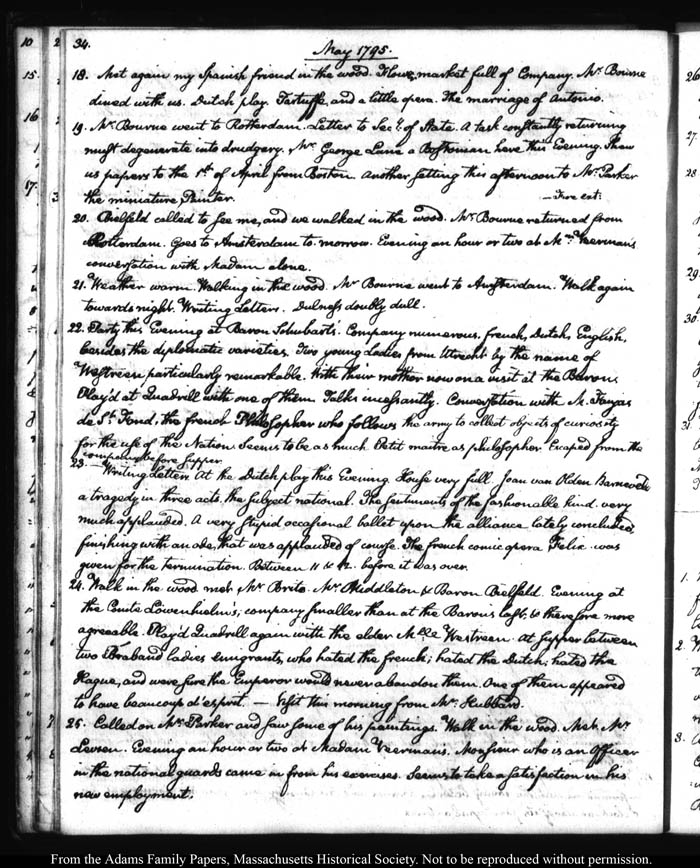 10
15.
16
17.
2
3
34.
May 1795.
18. Met again my Spanish friend in the wood. Flower market full of Company. Mr. Bourne
dined with us. Dutch play. Tartuffe, and a little opera. The marriage of Antonio.
19. Mr. Bourne went to Rotterdam. Letter to Secy. of State. A task constantly returning
must degenerate into drudgery. Mr. George Lane a Bostonian here this Evening. Shew
us papers to the 1st. of April from Boston. Another sitting this afternoon to Mr. Parker
the miniature Painter.
20. Bielfeld called to see me, and we walked in the wood. Mr. Bourne returned from
Rotterdam. Goes to Amsterdam to-morrow. Evening an hour or two at Mme. Veerman's
conversation with Madam alone.
21. Weather warm. Walking in the wood. Mr Bourne went to Amsterdam. Walk again
towards night. Writing Letters. Dulness doubly dull.
22. Party this Evening at Baron Schubart's. Company numerous. french, Dutch, English,
besides the diplomatic varieties. Two young Ladies from Utrecht by the name of
Westreen particularly remarkable. With their mother now on a visit at the Barons
Play'd at Quadrill with one of them. Talks incessantly. Conversation with Mr. Faujas
de St. Fond, the french Philosopher who follows the army to collect objects of curiosity
for the use of the Nation. Seems to be as much Petit maitre as philosopher. Escaped from the
company before supper.
23. Writing Letters. At the Dutch play this Evening. House very full. Joan van Olden Barneveldt
a tragedy in three acts. the subject national. The sentiments of the fashionable kind. very
much applauded. A very stupid occasional ballet upon the alliance lately concluded,
finishing with an ode, that was applauded of course. The french comic opera Felix was
given for the termination. Between 11 & 12. before it was over.
24. Walk in the wood met Mr Brito. Mr. Middleton & Baron Bielfeld. Evening at
the Comte Löwenhielm's; company smaller than at the Baron's last, & therefore more
agreeable. Play'd Quadrill again with the elder Mlle. Westreen. At supper between
two Braband ladies emigrants, who hated the french; hated the Dutch; hated the
Hague, and were sure the Emperor would never abandon them. One of them appeared
to have beaucoup d'esprit. — Visit this morning from Mr. Hubbard.
25. Called on Mr. Parker and saw some of his paintings. Walk in the wood. Met Mr
Levsen. Evening an hour or two at Madam Veerman's. Monsieur who is an Officer
in the national guards came in from his exercises. Seems to take a satisfaction in his
new employment.
26
27
28
29
30
31
1.
2.
3.
From the Adams Family Papers, Massachusetts Historical Society. Not to be reproduced without permission.